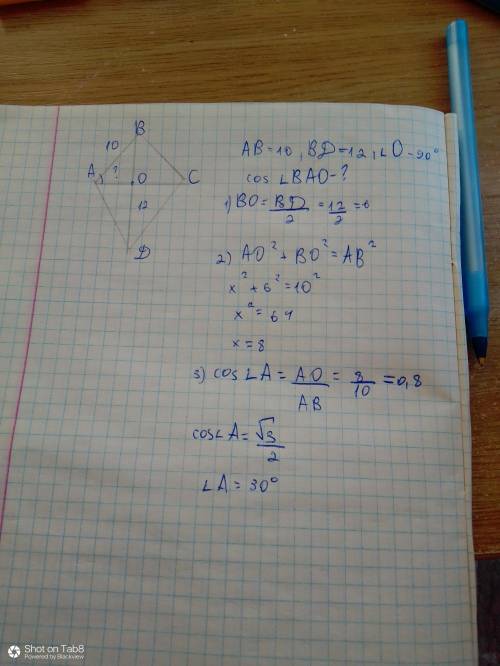 B
10
A ? O C
12
D
AB=10, BD=12, ∠O-90°
cos ∠BAO-?
1) BO = BD/2 = 12/2 = 6
2) AO² + BO² = AB²
x² + 6² = 10²
x² = 64
x = 8
3) cos ∠A = AO/AB = 8/10 = 0,8
cos∠A = √3/2
∠A = 30°
Shot on Tab8
Powered by Blackview